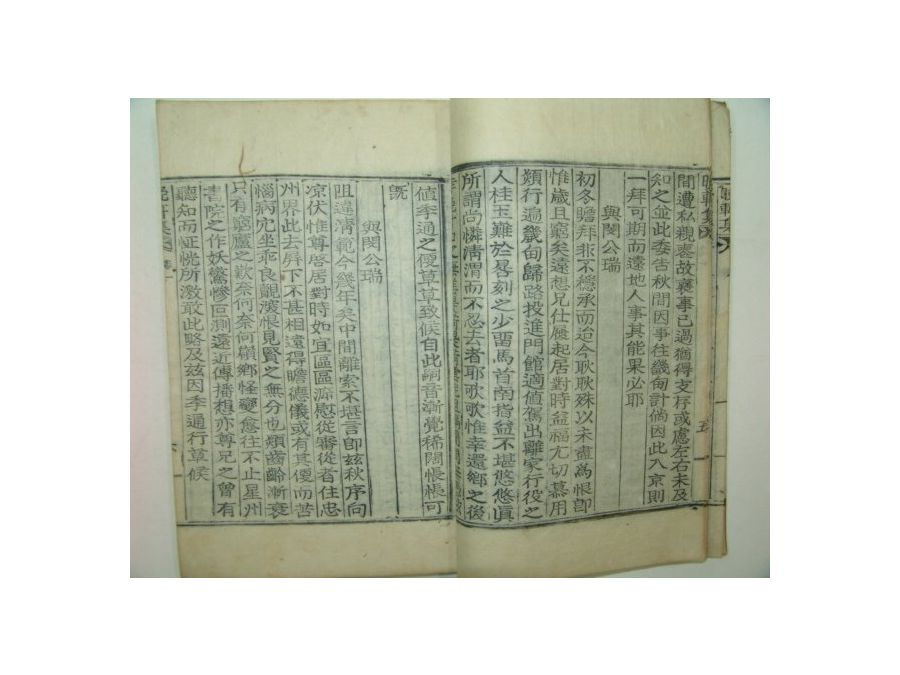 間遭私親喪故襄事已過猶得支杇或慮左右未及
知之並此委告秋間因事往畿甸計倘因此入京則
一拜可期而遠地人事其能果必耶
與閔公瑞
初冬瞻拜非不穩承而迨今耿耿殊以未盡爲恨卽
惟歲且窮矣遠想兄仕履起居對時益福尤切慕用
頃行遍畿甸歸路投進門館適値駕出離家行役之
人桂玉難於晷刻之少留馬首南指益不堪悠悠眞
所謂尚憐淸渭而不忍去者耶歌歌惟幸還鄉之後
値季通之便草草致候自此嗣音漸覺稀闊悵悵可
旣
與閔公瑞
阻違淸範今幾年矣中間離索不堪言卽玆秋序向
凉伏惟尊啓居對時如宜區區溯慰從審從者住忠
州界此去屛下不甚相遠得瞻德儀或有其便而苦
惱病冗坐乖良覿深恨見賢之無分也頹齒齡漸衰
只有窮廬之歎奈何奈何嶺鄉怪變愈往不止星州
書院之作妖驚慘叵測遠近傳播想亦尊兄之曾有
聽知而怔恍所激敢此略及玆因季通行草候